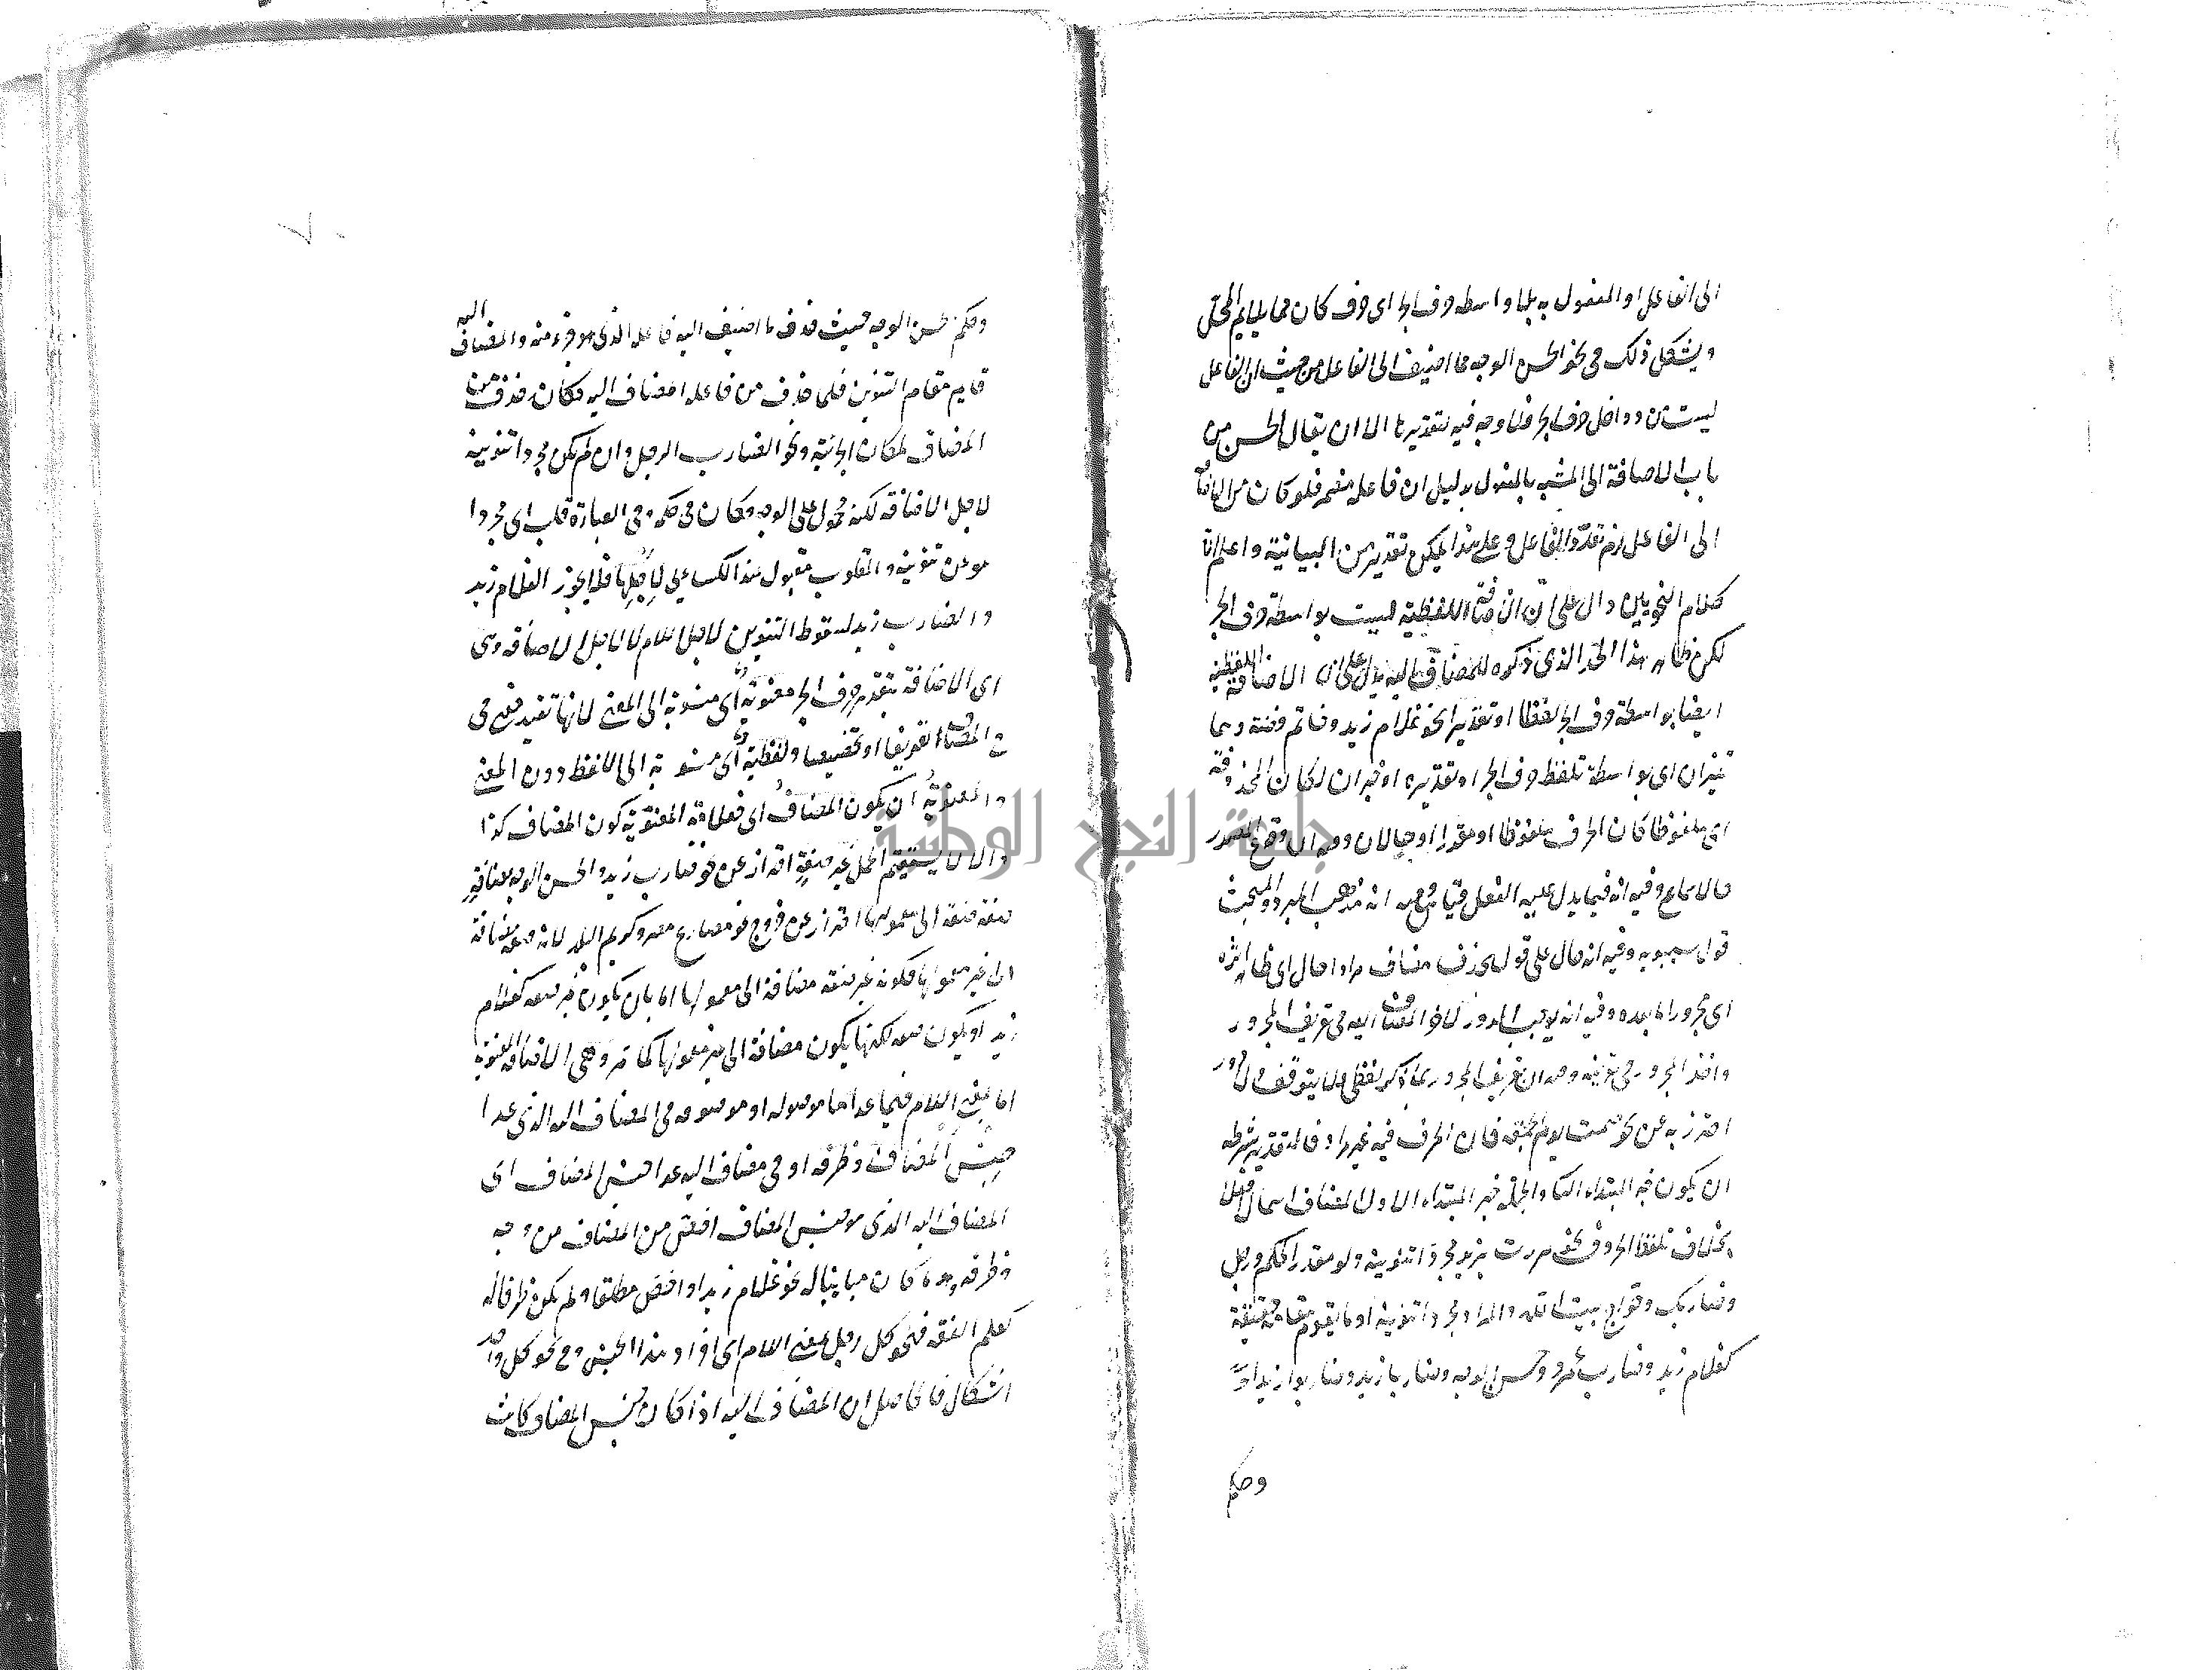 الى الفاعل او المفعول به بلا واسطة حرف الجر اى حرف كان مما يلايم المحل
ويشكل ذلك فى نحو الحسن الوجه مما اضيف الى الفاعل من حيث ان الفاعل
ليست من دواخل حرف الجر فلا وجه فيه لتقديرها الا ان يقال الحسن من
باب الاضافة الى المشبه بالمفعول بدليل ان فاعله مضمر فلو كان من
الى الفاعل لزم تعدد الفاعل وعلى هذا يمكن تقدير من البيانية واعلم ان
كلام النحويين دال على ان الاضافة اللفظية ليست بواسطة حرف الجر
لكن ظاهر هذا الحد الذى ذكره للمضاف اليه يدل على ان الاضافة اللفظية
ايضا بواسطة حرف الجر لفظا او تقديرا نحو غلام زيد وخاتم فضة وهما
تميزان اى بواسطة تلفظ حرف الجر او تقديره او خبران لكان المحذوفة
اى ملفوظا كان الحرف ملفوظا او مقدرا او حالان وفيه ان وقوع المصدر
حالا سماع وفيه انه فيما يدل عليه الفعل قياس وفيه انه مذهب المبرد والمبحث
قول سيبويه وفيه انه حال على قوله بحذف مضاف مرادا حال اى ظاهرا اثره
اى مجرورا ما بعده وفيه انه يوجب الدور لاخذ المضاف اليه فى تعريف المجرور
واخذ المجرور فى تعريفه وفيه ان تعريف المجرور بما ذكر لفظى فلا يتوقف ولا دور
احترز به عن نحو صمت يوم الجمعة فان الحرف فيه غير مراد فالتقدير شرطه
ان يكون فيه المبتداء الثانى والجملة خبر المبتداء الاول المضاف اسما لا فعلا
بخلاف تلفظ الحروف نحو مررت بزيد مجردا تنوينه ولو مقدرا فكم رجل
وضاربك وحواج بيت الله والمراد مجردا تنوينه او ما يقوم مقامه حقيقة
كغلام زيد وضارب عمرو وحسن الوجه وضاربا زيد وضاربوا زيد او
وحكم
وحكم حسن الوجه حيث حذف ما اضيف اليه فاعله الذى هو جزء منه والمضاف اليه
قايم مقام التنوين فلما حذف من فاعله المضاف اليه فكان حذف من
المضاف لمكان الجزئية ونحو الضارب الرجل وان لم يكن مجردا تنوينه
لاجل الاضافة لكنه محمول على الوجه فكان فى حكمه وفى العبارة قلب اى مجردا
هو عن تنوينه والقلوب مقبول عند السكاكى لاجلها فلا يجوز الغلام زيد
والضارب زيد لسقوط التنوين لاجل اللام لا لاجل الاضافة وهى
اى الاضافة بتقدير حرف الجر معنوية اى منسوبة الى المعنى لانها تفيد معنى فى
المضاف تعريفا او تخصيصا ولفظية اى منسوبة الى اللفظ دون المعنى
والمعنوية ان يكون المضاف اى فعلامة المعنوية كون المضاف كذا
والا لا يستقيم الحمل غير صفة احتراز عن نحو ضارب زيد والحسن الوجه مضافة
صفة صفة الى معمولها احتراز عن خروج نحو مصارع مصر وكريم البلد لانه صفة مضافة
الى غير معمولها فكونه غير صفة مضافة الى معمولها اما بان يكون غير صفة كغلام
زيد او يكون صفة لكنها يكون مضافة الى غير معمولها كما مر وهى اى الاضافة المعنوية
اما بمعنى اللام فيما عدا ما موصوله او موصوفه فى المضاف اليه الذى عدا
جنس المضاف وظرفه او فى مضاف اليه عدا جنس المضاف اى
المضاف اليه الذى هو جنس المضاف اخص من المضاف من وجه
وظرفه وهذا كان مباينا له نحو غلام زيد او اخص مطلقا ولم يكن ظرفا له
كعلم الفقه فنحو كل رجل بمعنى اللام اى افراد هذا الجنس وفى نحو كل واحد
اشكال فالحاصل ان المضاف اليه اذا كان جنس المضاف وكانت
جامعة النجاح الوطنية